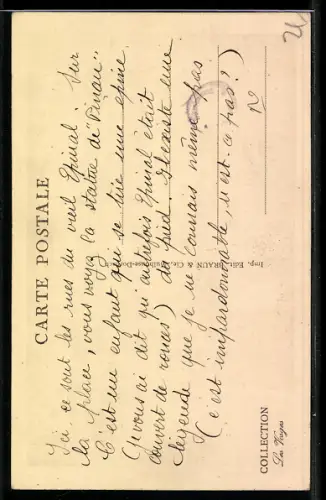 CARTE POSTALE
Ici ce sont les rues du vieil Epinal. Sur
la place, vous voyez la statue de "Pinau".
C'est un enfant qui se tire une épine
(Je vous ai dit qu'autrefois Epinal était
couvert de ronces) du pied. Il existe une
légende que je ne connais même pas
(c'est impardonnable, n'est-ce pas?)
Imp. Edit. BRAUN & Cie,
COLLECTION
Les Vosges